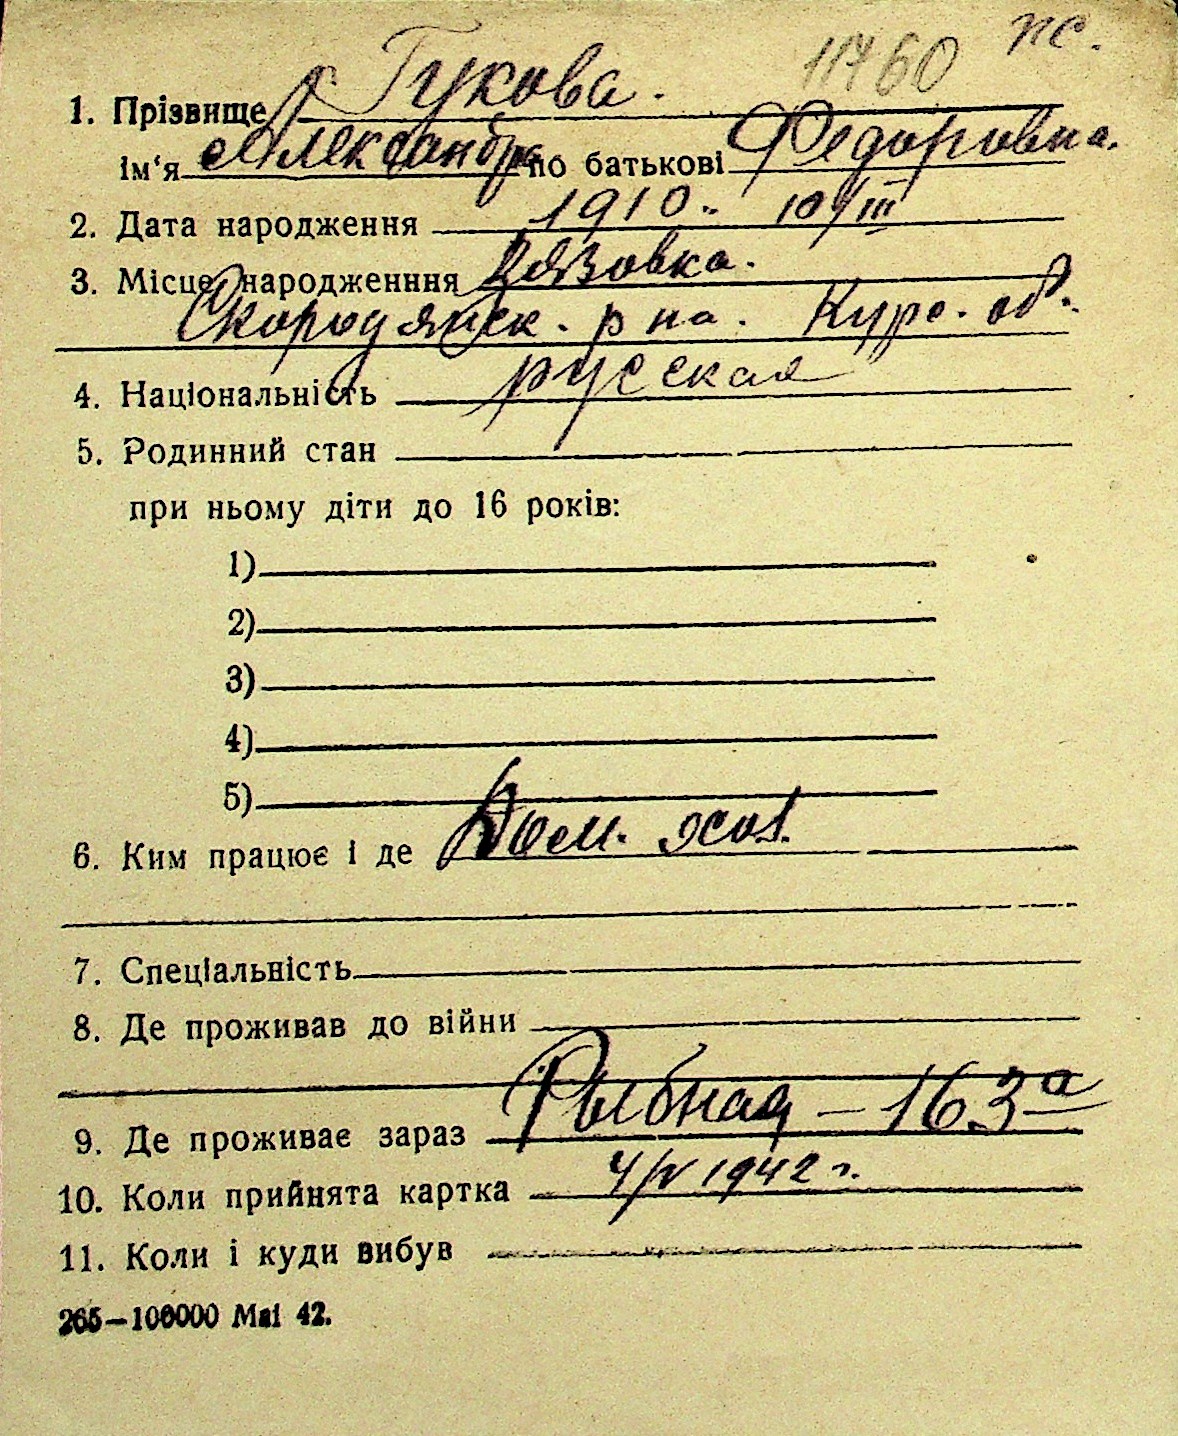 11760 пс.
1. Прізвище Гукова.
ім‘я Александра по батькові Федоровна.
2. Дата народження 1910. 10/III
3. Місце народженння
Скороднянск. р на. Курс. об.
4. Національність русская
5. Родинний стан
при ньому діти до 16 років:
1)
2)
3)
4)
5)
6. Ким працює і де Дом. хоз.
7. Спеціальність
8. Де проживав до війни
9. Де проживає зараз Рыбная – 163а
10. Коли прийнята картка 4/V 1942 г.
11. Коли і куди вибув
265–100000 Маі 42.